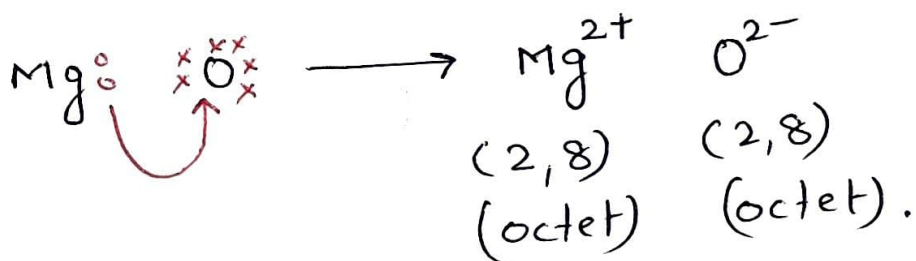 Mg O ⟶ Mg²⁺ O²⁻
(2,8) (2,8)
(octet) (octet).